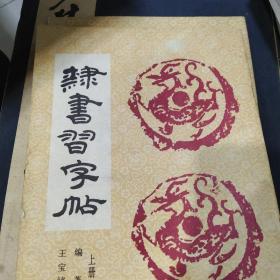 隸書習字帖
上册
編著
王宝